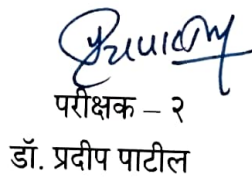 परीक्षक – २
डॉ. प्रदीप पाटील